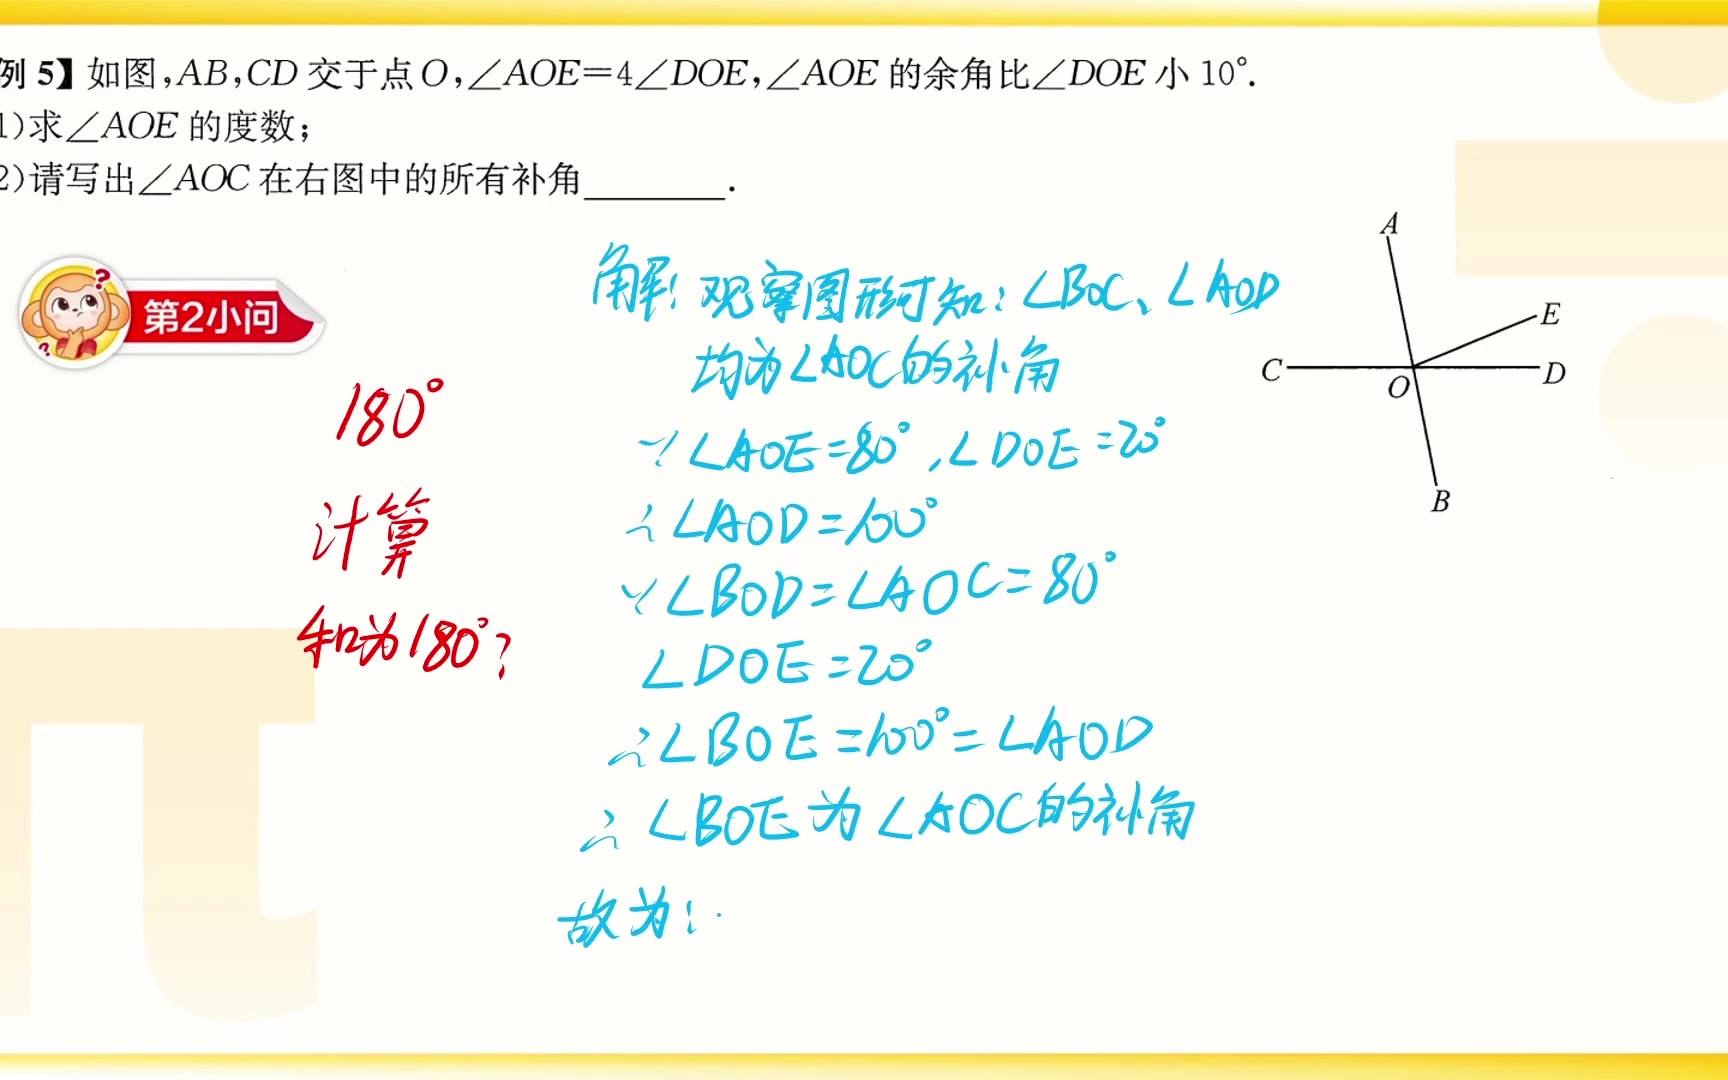 例 5】如图,AB,CD 交于点O,∠AOE=4∠DOE,∠AOE 的余角比∠DOE 小 10°.
1)求∠AOE 的度数;
2)请写出∠AOC 在右图中的所有补角________.
第2小问
180°
计算
和为180°?
解: 观察图形可知:∠BOC、∠AOD
均为∠AOC的补角
∵∠AOE=80°,∠DOE=20°
∴∠AOD=100°
∵∠BOD=∠AOC=80°
∠DOE=20°
∴∠BOE=100°=∠AOD
∴∠BOE为∠AOC的补角
故为:
A
E
C
O
D
B